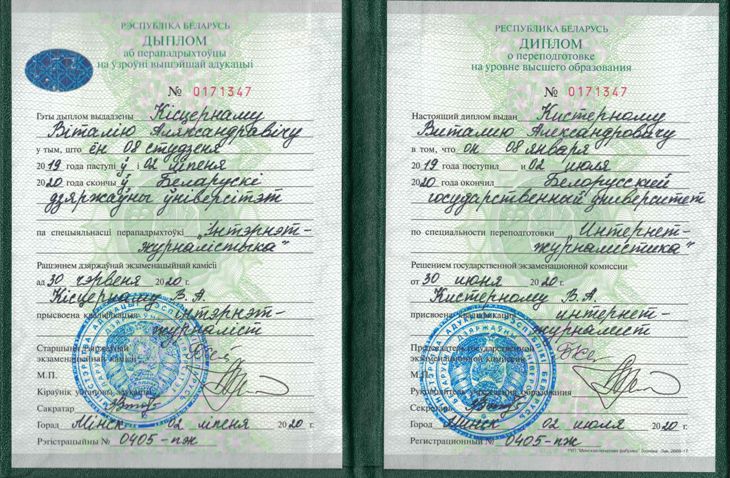 РЭСПУБЛІКА БЕЛАРУСЬ
ДЫПЛОМ
аб перападрыхтоўцы
на ўзроўні вышэйшай адукацыі
№ 0171347
Гэты дыплом выдадзены Кісцернаму
Віталію Аляксандравічу
у тым, што ён 08 студзеня
2019 года паступіў ў і 02 ліпеня
2020 года скончыў ў Беларускі
дзяржаўны ўніверсітэт
па спецыяльнасці перападрыхтоўкі „Інтэрнэт-
журналістыка"
Рашэннем дзяржаўнай экзаменацыйнай камісіі
ад 30 чэрвеня 2020 г.
Кісцернаму В.А.
прысвоена кваліфікацыя інтэрнэт-
журналіст
Старшыня дзяржаўнай
экзаменацыйнай камісіі
М.П.
Кіраўнік установы адукацыі
Сакратар
Горад Мінск 02 ліпеня 2020 г.
Рэгістрацыйны № 0405-пж
РЕСПУБЛИКА БЕЛАРУСЬ
ДИПЛОМ
о переподготовке
на уровне высшего образования
№ 0171347
Настоящий диплом выдан Кистерному
Виталию Александровичу
в том, что он 08 января
2019 года поступил и 02 июля
2020 года окончил Белорусский
государственный университет
по специальности переподготовки „Интернет-
журналистика"
Решением государственной экзаменационной комиссии
от 30 июня 2020 г.
Кистерному В.А.
присвоена квалификация интернет-
журналист
Председатель государственной
экзаменационной комиссии
М.П.
Руководитель учреждения образования
Секретарь
Город Минск 02 июля 2020 г.
Регистрационный № 0405-пж